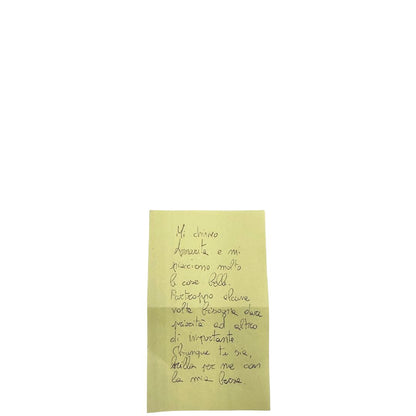 Mi chiamo
Amarita e mi
piacciono molto
le cose belle.
Purtroppo alcune
volte bisogna dare
priorità ad altro
di importante.
Chiunque tu sia,
brilla per me con
la mia borsa